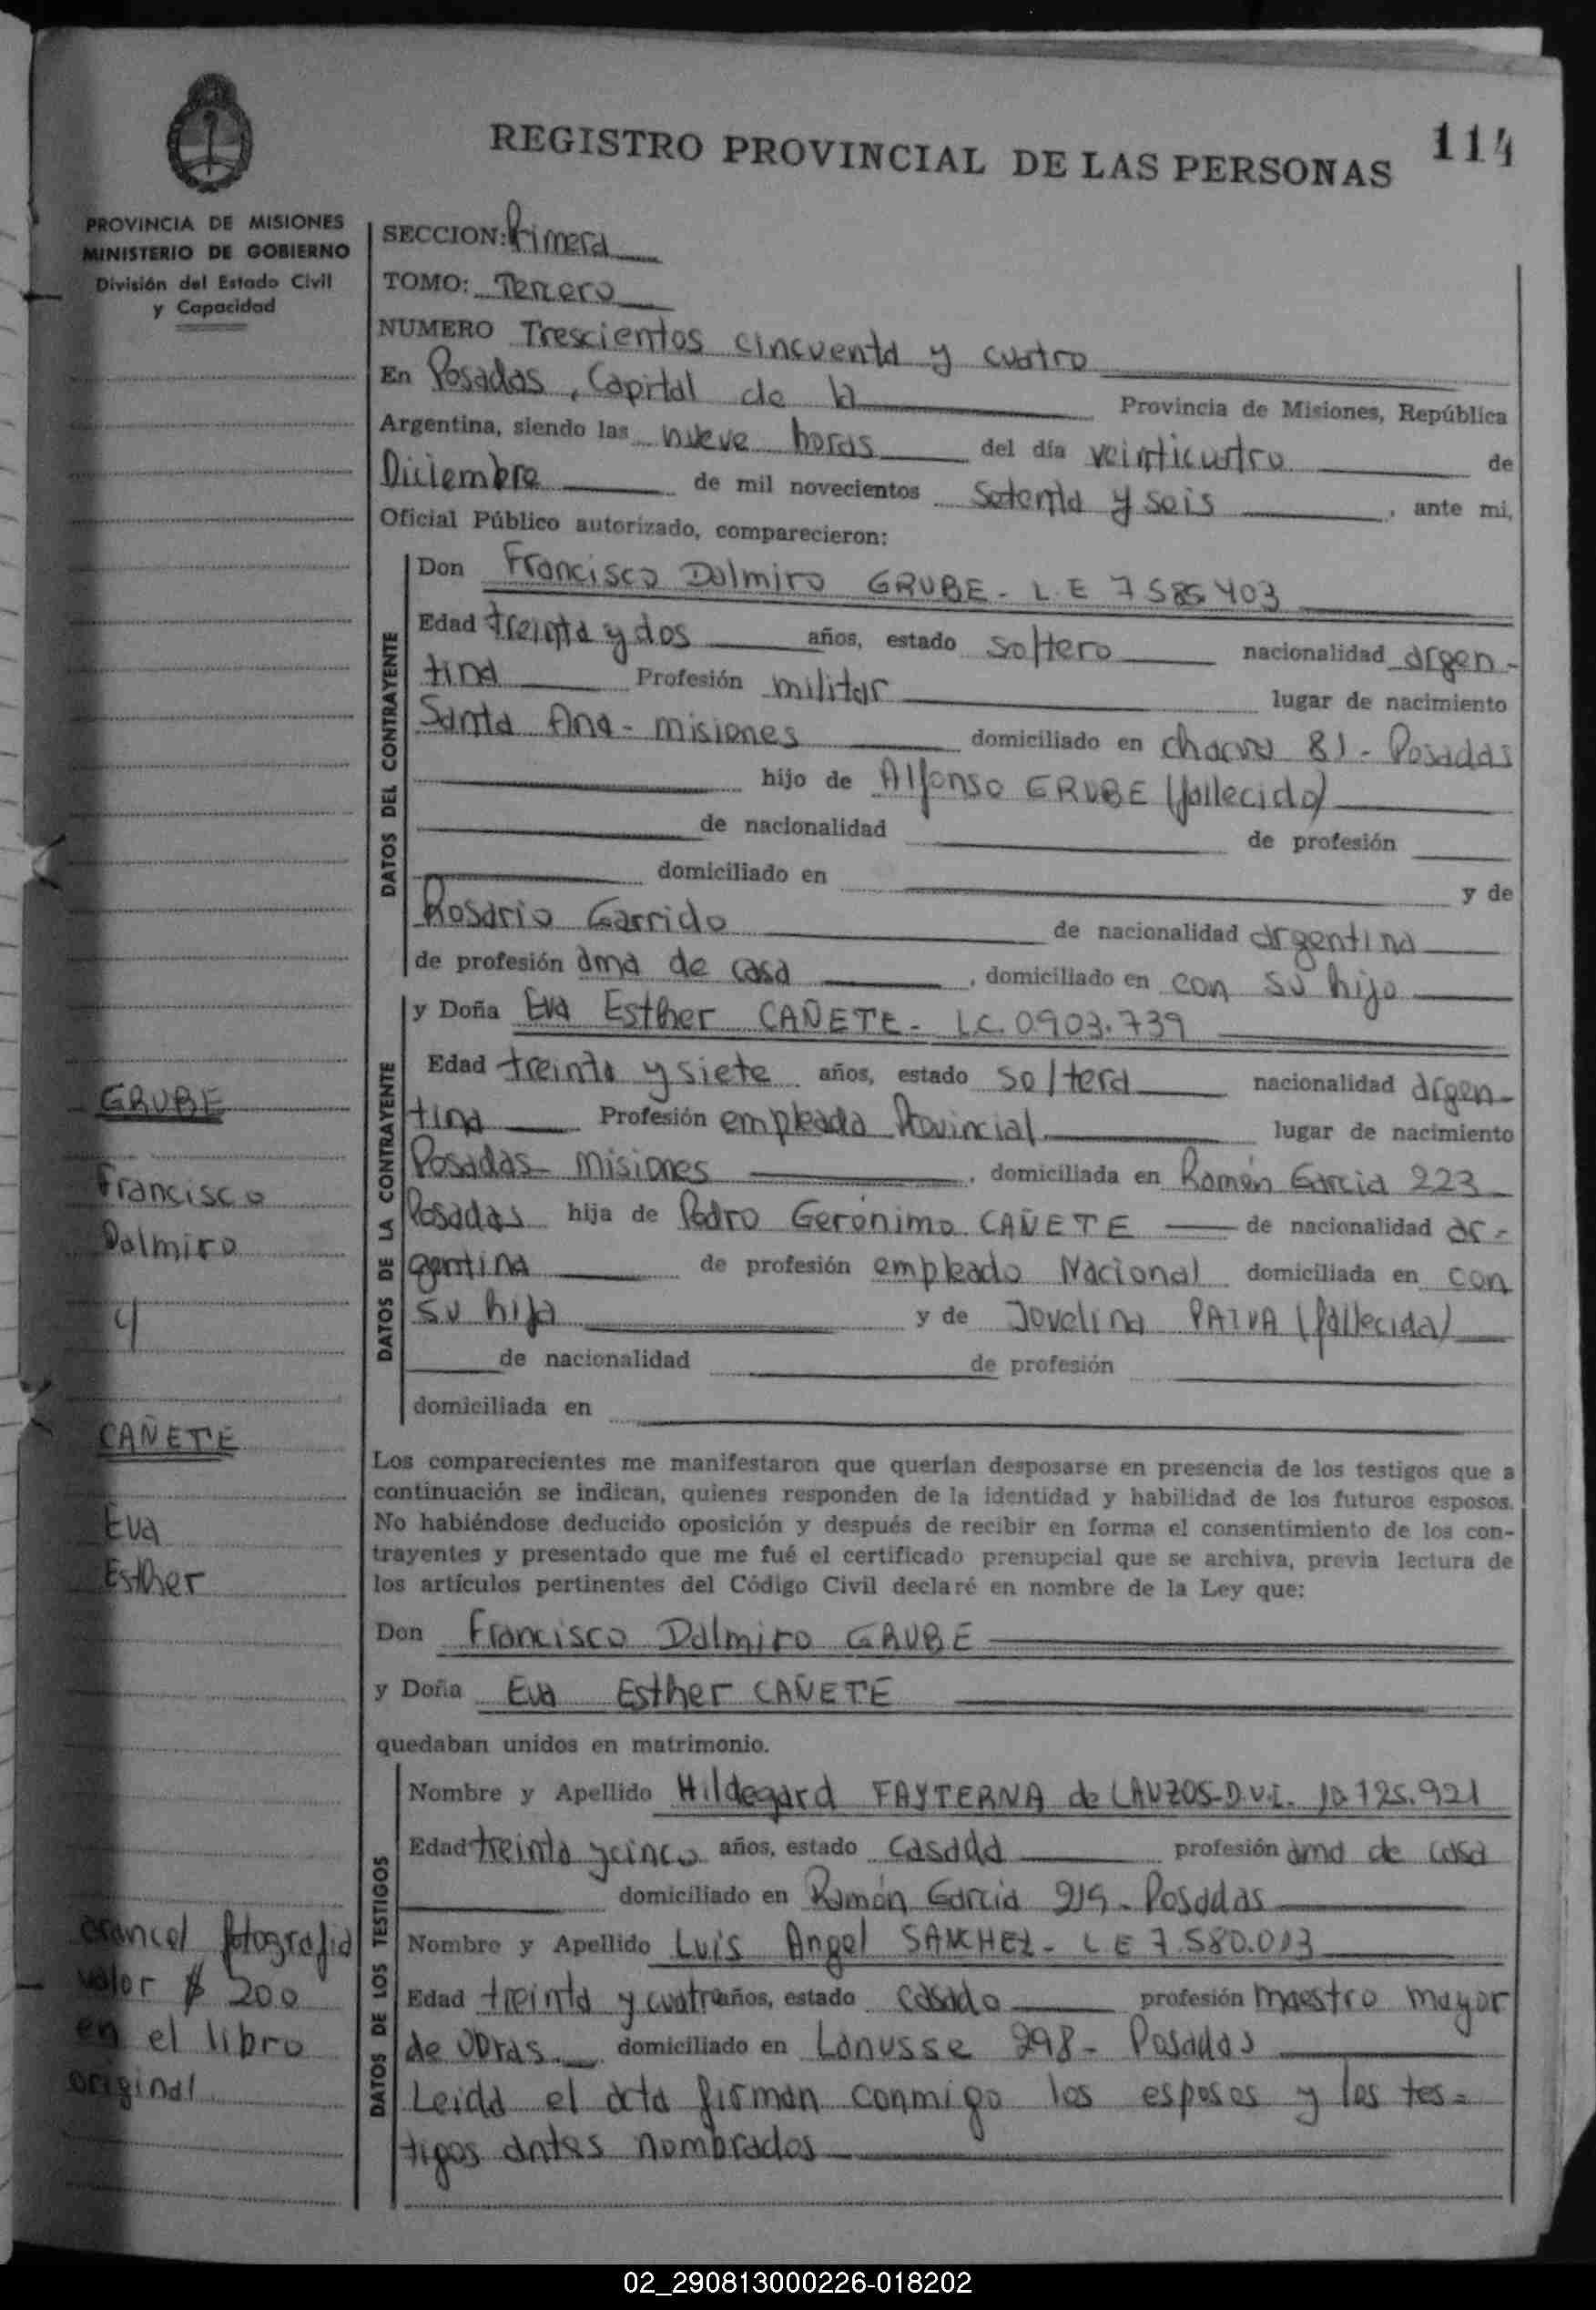 REGISTRO PROVINCIAL DE LAS PERSONAS 114
PROVINCIA DE MISIONES
MINISTERIO DE GOBIERNO
División del Estado Civil
y Capacidad
SECCION: Primera
TOMO: Tercero
NUMERO Trescientos cincuenta y cuatro
En Posadas, Capital de la Provincia de Misiones, República
Argentina, siendo las nueve horas del día veinticuatro de
Diciembre de mil novecientos setenta y seis, ante mi,
Oficial Público autorizado, comparecieron:
DATOS DEL CONTRAYENTE
Don Francisco Dalmiro GRUBE - L E 7585403
Edad treinta y dos años, estado soltero nacionalidad argen-
tina Profesión militar lugar de nacimiento
Santa Ana - Misiones domiciliado en chacra 81 - Posadas
hijo de Alfonso GRUBE (fallecido)
de nacionalidad de profesión
domiciliado en y de
Rosario Garrido de nacionalidad argentina
de profesión ama de casa, domiciliado en con su hijo
DATOS DE LA CONTRAYENTE
y Doña Eva Esther CAÑETE - L.C. 0903.739
Edad treinta y siete años, estado soltera nacionalidad argen-
tina Profesión empleada Provincial lugar de nacimiento
Posadas - Misiones, domiciliada en Ramón Garcia 223 -
Posadas hija de Pedro Gerónimo CAÑETE de nacionalidad ar-
gentina de profesión empleado Nacional domiciliada en con
su hija y de Jovelina PAIVA (fallecida)
de nacionalidad de profesión
domiciliada en
Los comparecientes me manifestaron que querían desposarse en presencia de los testigos que a
continuación se indican, quienes responden de la identidad y habilidad de los futuros esposos.
No habiéndose deducido oposición y después de recibir en forma el consentimiento de los con-
trayentes y presentado que me fué el certificado prenupcial que se archiva, previa lectura de
los artículos pertinentes del Código Civil declaré en nombre de la Ley que:
Don Francisco Dalmiro GRUBE
y Doña Eva Esther CAÑETE
quedaban unidos en matrimonio.
DATOS DE LOS TESTIGOS
Nombre y Apellido Hildegard FAYTERNA de LAUZOS - D.U.I. 10.725.921
Edad treinta y cinco años, estado casada profesión ama de casa
domiciliado en Ramón Garcia 219 - Posadas
Nombre y Apellido Luis Angel SANCHEZ - L E 7.580.013
Edad treinta y cuatro años, estado casado profesión maestro mayor
de obras domiciliado en Lanusse 298 - Posadas
Leida el acta firman conmigo los esposos y los tes=
tigos antes nombrados
GRUBE
Francisco
Dalmiro
y
CAÑETE
Eva
Esther
arancel fotografia
valor $ 200
en el libro
original
02_290813000226-018202